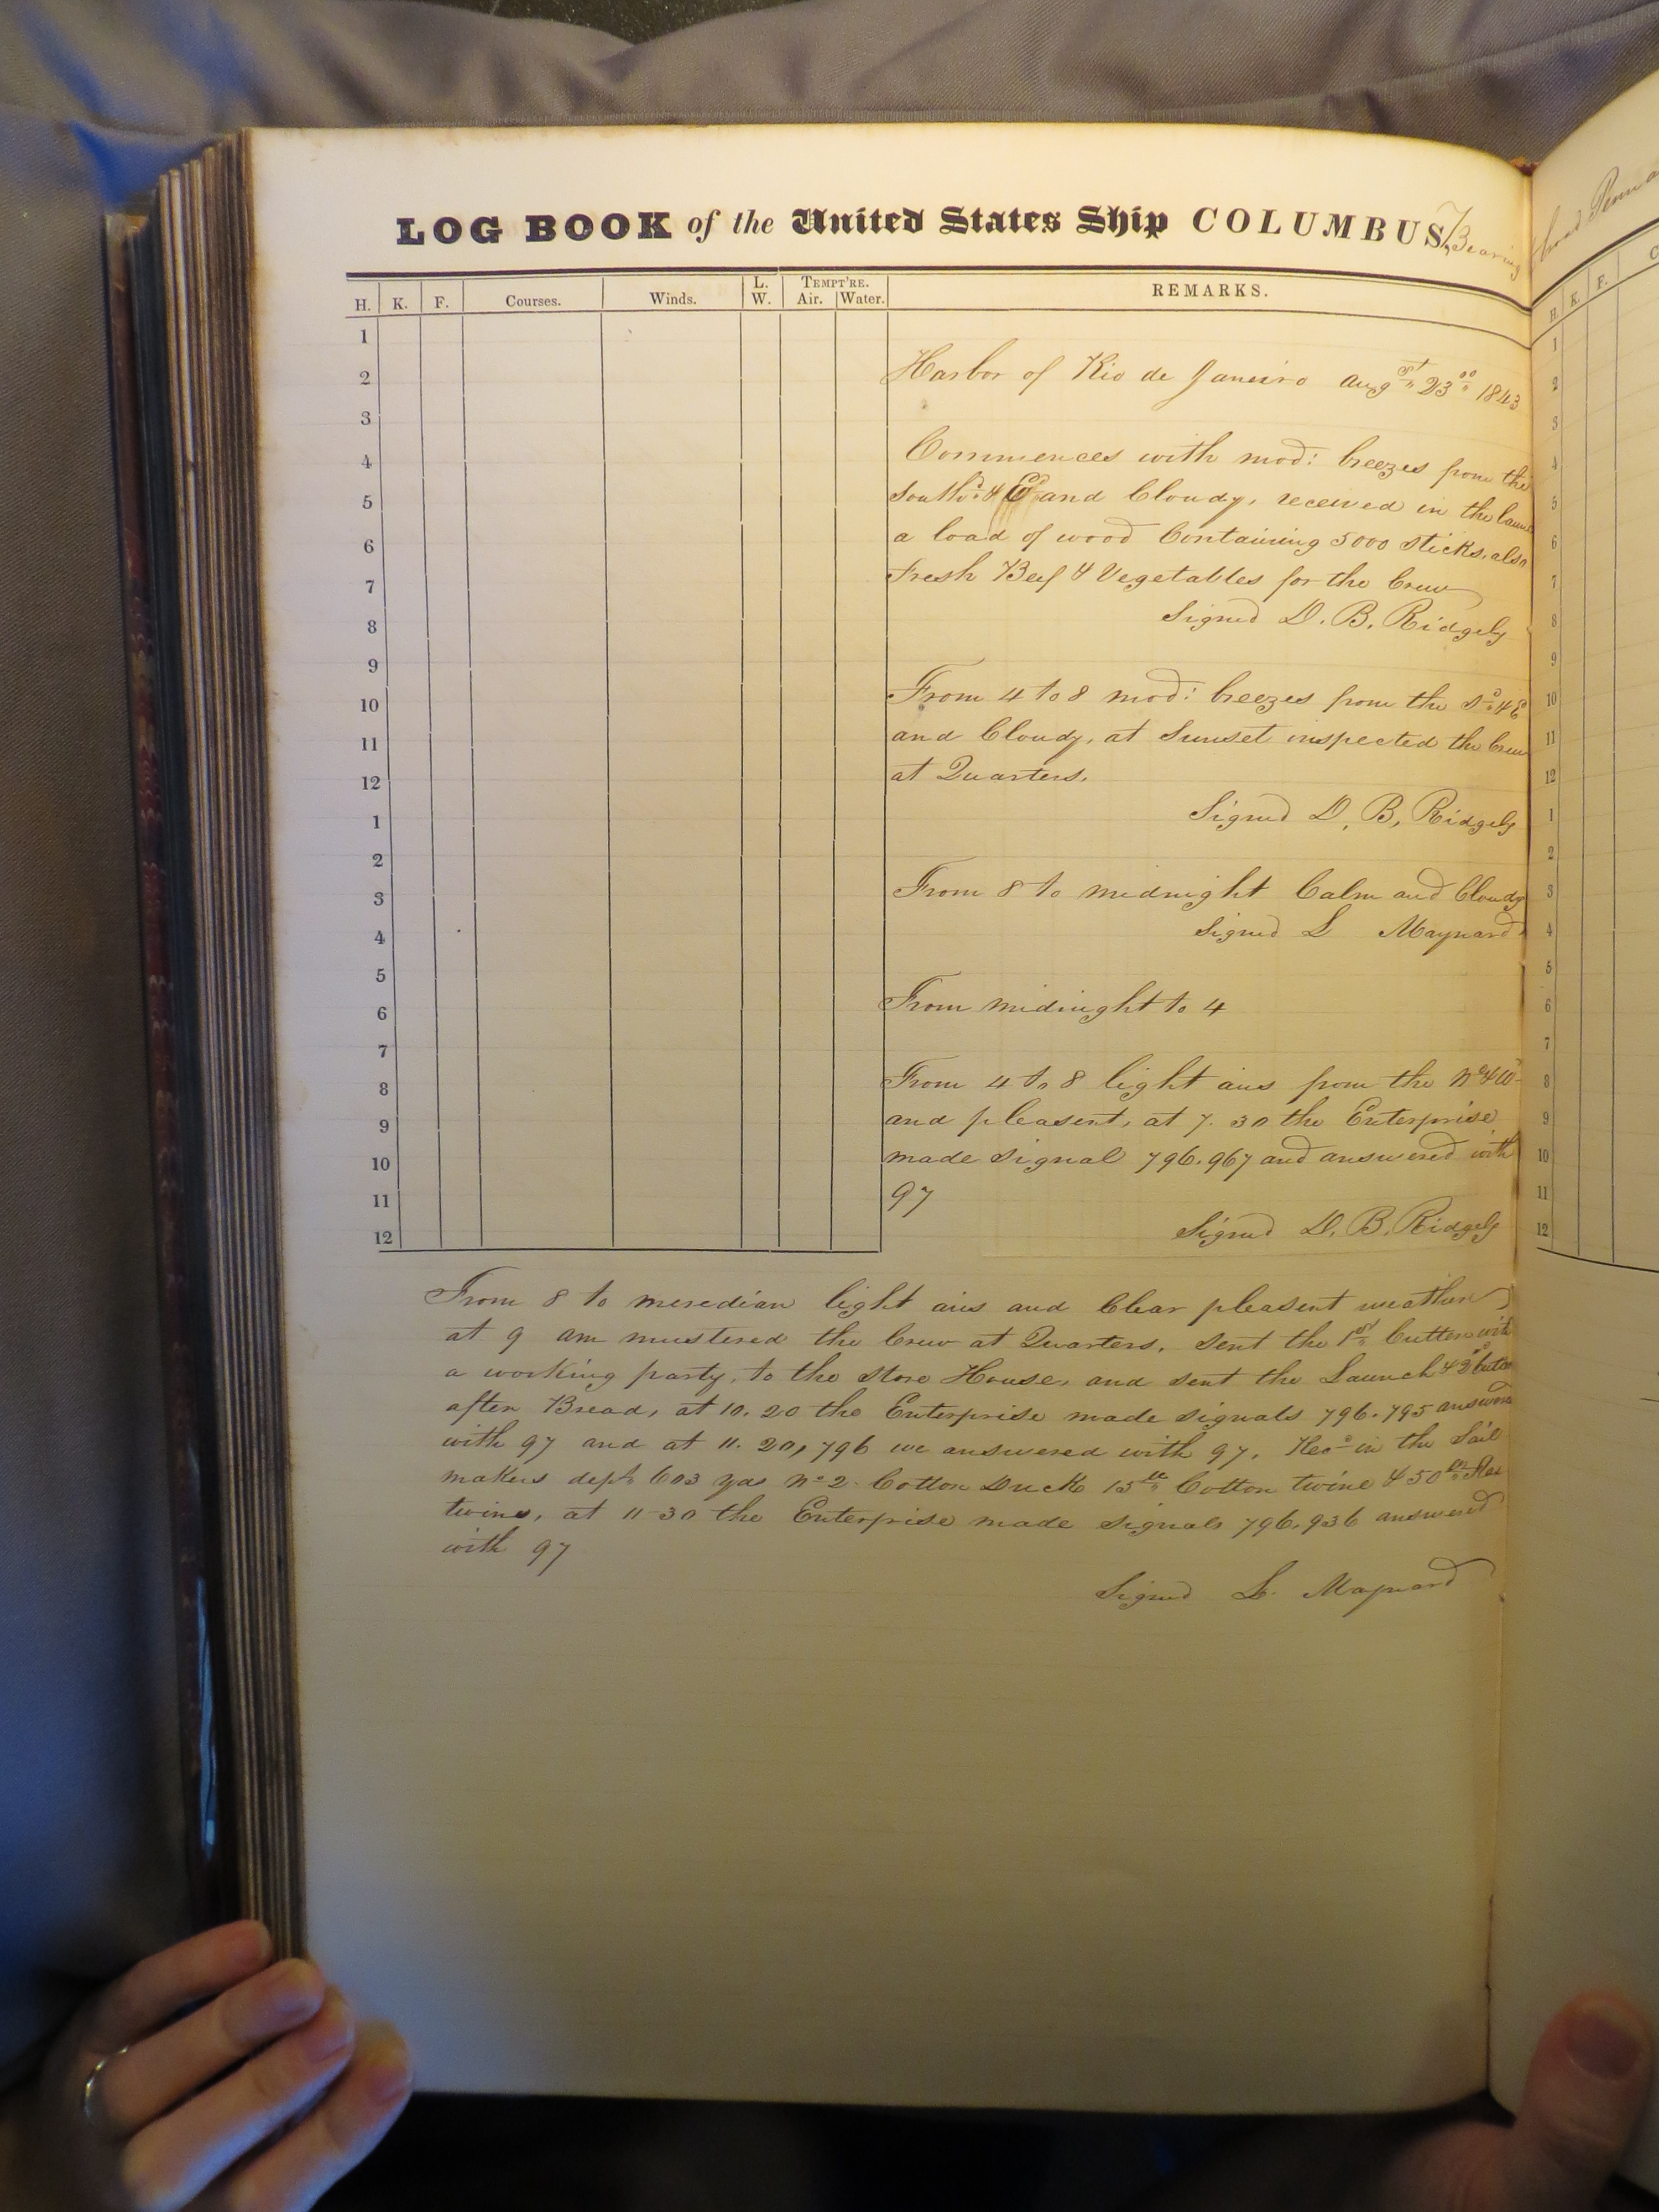 LOG BOOK of the United States Ship COLUMBUS, Bearing
H. K. F. Courses. Winds. L. W. TEMPT'RE. Air. Water. REMARKS.
1
2 Harbor of Rio de Janeiro Augst 23rd 1843
3
4 Commences with mod: breezes from the
5 Southd & Ed and Cloudy, received in the
6 a load of wood Containing 5000 Sticks, also
7 Fresh Beef & Vegetables for the Crew
8 Signed D. B. Ridgely
9
10 From 4 to 8 mod: breezes from the Sd & Ed
11 and Cloudy, at Sunset inspected the Crew
12 at Quarters.
1 Signed D. B. Ridgely
2
3 From 8 to midnight Calm and Cloudy
4 Signed L Maynard
5
6 From midnight to 4
7
8 From 4 to 8 light airs from the Nd & Wd
9 and pleasent, at 7.30 the Enterprise
10 made Signal 796.967 and answered with
11 97
12 Signed D. B. Ridgely
From 8 to meredian light airs and Clear pleasent weather
at 9 am mustered the Crew at Quarters. Sent the 1st Cutter with
a working party, to the Store House, and sent the Launch &
after Bread, at 10.20 the Enterprise made Signals 796.795
with 97 and at 11.20, 796 we answered with 97. Recd in the Sail
makers dept 603 yds No 2 Cotton Duck 15 Cotton twine & 50
twine, at 11-30 the Enterprise made Signals 796.936 answered
with 97
Signed L. Maynard
broad
H. K. F.
1
2
3
4
5
6
7
8
9
10
11
12
1
2
3
4
5
6
7
8
9
10
11
12